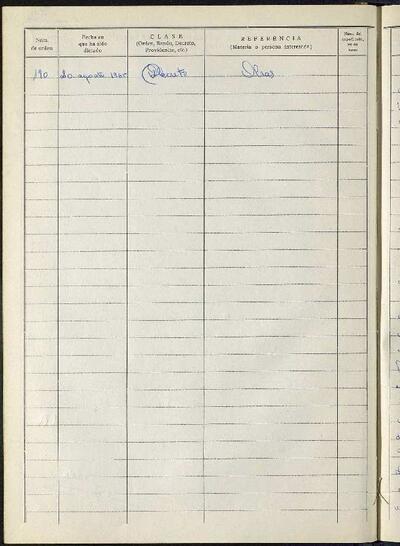 Núm. de orden
Fecha en que ha sido dictado
CLASE
(Orden, Bando, Decreto, Providencia, etc.)
REFERENCIA
(Materia o persona interesada)
190 20 agosto Decreto Obras